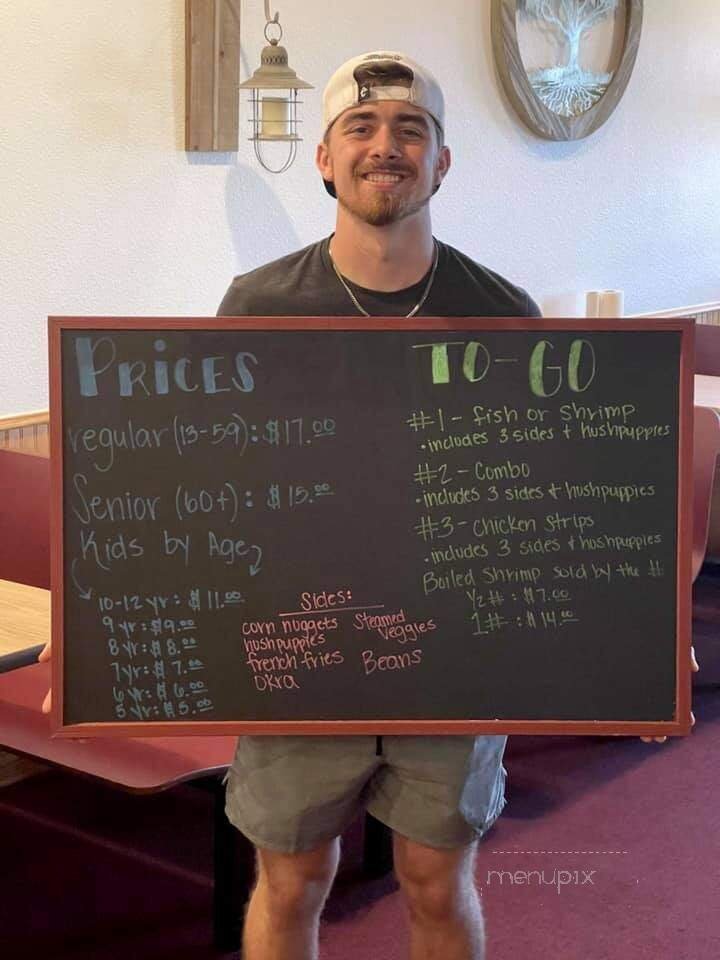 PRICES
regular (13-59): $17.00
Senior (60+): $15.00
Kids by Age
10-12 yr: $11.00
9 yr: $9.00
8 yr: $8.00
7yr: $7.00
6 yr: $6.00
5 yr: $5.00
Sides:
corn nuggets
hushpuppies
french fries
Okra
Steamed
Veggies
Beans
TO-GO
#1- fish or Shrimp
• includes 3 sides + hushpuppies
#2- Combo
• includes 3 sides + hushpuppies
#3- Chicken Strips
• includes 3 sides + hushpuppies
Boiled Shrimp sold by the #
1/2 #: $7.00
1 #: $14.00
menupix